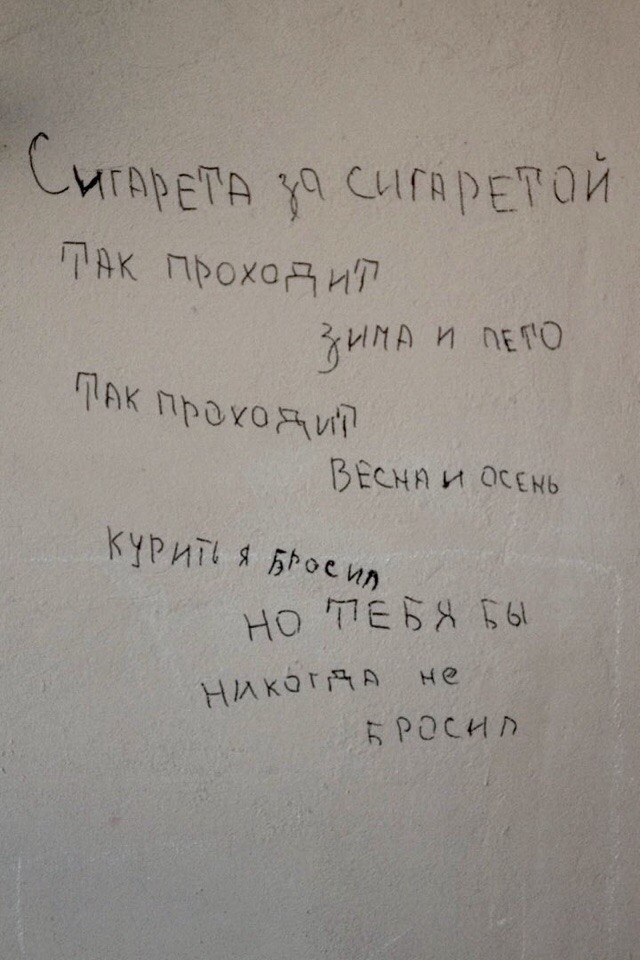 Сигарета за сигаретой
так проходит
зима и лето
так проходит
весна и осень
курить я бросил
но тебя бы
никогда не
бросил